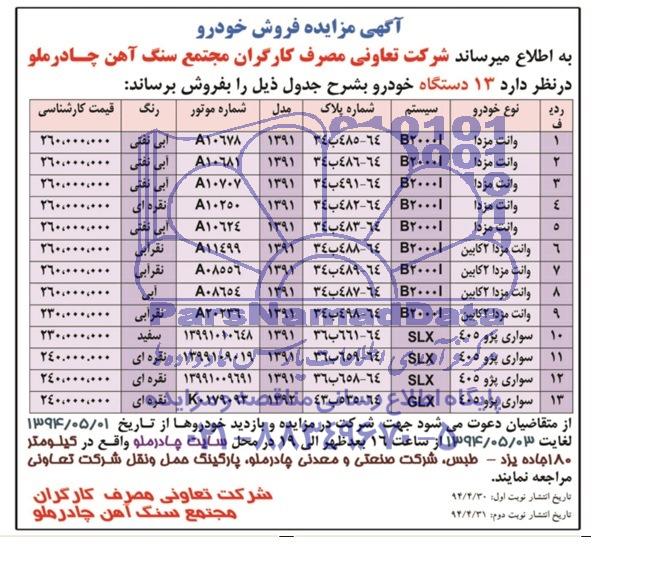 آگهی مزایده فروش خودرو
به اطلاع میرساند شرکت تعاونی مصرف کارگران مجتمع سنگ آهن چـادرملو
درنظر دارد ۱۳ دستگاه خودرو بشرح جدول ذیل را بفروش برساند:
ردیف نوع خودرو سیستم شماره پلاک مدل شماره موتور رنگ قیمت کارشناسی
۱ وانت مزدا B۲۰۰۰I ۶۴-۴۸۵ب۳۴ ۱۳۹۱ A۱۰۶۷۸ آبی نفتی ۲۶۰,۰۰۰,۰۰۰
۲ وانت مزدا B۲۰۰۰I ۶۴-۴۸۶ب۳۴ ۱۳۹۱ A۱۰۶۸۱ آبی نفتی ۲۶۰,۰۰۰,۰۰۰
۳ وانت مزدا B۲۰۰۰I ۶۴-۴۹۱ب۳۴ ۱۳۹۱ A۱۰۷۰۷ آبی نفتی ۲۶۰,۰۰۰,۰۰۰
۴ وانت مزدا B۲۰۰۰I ۶۴-۴۸۲ب۳۴ ۱۳۹۱ A۱۰۲۵۰ نقره ای ۲۶۰,۰۰۰,۰۰۰
۵ وانت مزدا B۲۰۰۰I ۶۴-۴۸۳ب۳۴ ۱۳۹۱ A۱۰۶۲۴ آبی نفتی ۲۶۰,۰۰۰,۰۰۰
۶ وانت مزدا ۲کابین B۲۰۰۰I ۶۴-۴۸۸ب۳۴ ۱۳۹۱ A۱۱۴۹۹ نقرآبی ۲۶۰,۰۰۰,۰۰۰
۷ وانت مزدا ۲کابین B۲۰۰۰I ۶۴-۴۸۹ب۳۴ ۱۳۹۱ A۰۸۵۵۶ نقرآبی ۲۶۰,۰۰۰,۰۰۰
۸ وانت مزدا ۲کابین B۲۰۰۰I ۶۴-۴۸۷ب۳۴ ۱۳۹۱ A۰۸۶۵۴ آبی ۲۶۰,۰۰۰,۰۰۰
۹ وانت مزدا ۲کابین B۲۰۰۰I ۶۴-۴۹۸ب۳۴ ۱۳۹۱ نقرآبی ۲۳۰,۰۰۰,۰۰۰
۱۰ سواری پژو ۴۰۵ SLX ۶۴-۶۶۱ب۳۶ ۱۳۹۱ ۱۳۹۹۱۰۱۰۶۴۸ سفید ۲۳۰,۰۰۰,۰۰۰
۱۱ سواری پژو ۴۰۵ SLX ۶۴-۶۵۹ب۳۶ ۱۳۹۱ ۱۳۹۹۱۰۹۰۱۹ نقره ای ۲۴۰,۰۰۰,۰۰۰
۱۲ سواری پژو ۴۰۵ SLX ۶۴-۶۵۸ب۳۶ ۱۳۹۱ ۱۳۹۹۱۰۰۹۶۹۱ نقره ای ۲۴۰,۰۰۰,۰۰۰
۱۳ سواری پژو ۴۰۵ GLX ۶۴-۵۳۵ب۴۳ ۱۳۹۲ نقره ای ۲۴۰,۰۰۰,۰۰۰
ParsNamadData
پایگاه اطلاع رسانی مناقصه و مزایده
از متقاضیان دعوت می شود جهت شرکت در مزایده و بازدید خودروها از تـاریخ ۱۳۹۴/۰۵/۰۱
لغایت ۱۳۹۴/۰۵/۰۳ از ساعت ۱۶ بعدظهر الی ۱۹ در محل سایت چادرملو واقع در کیلومتر
۱۸۰جاده یزد - طبس، شرکت صنعتی و معدنی چادرملو، پارکینگ حمل ونقل شرکت تعاونی
مراجعه نمایند.
تاریخ انتشار نوبت اول: ۹۴/۴/۳۰
تاریخ انتشار نوبت دوم: ۹۴/۴/۳۱
شرکت تعاونی مصرف کارگران
مجتمع سنگ آهن چادرملو